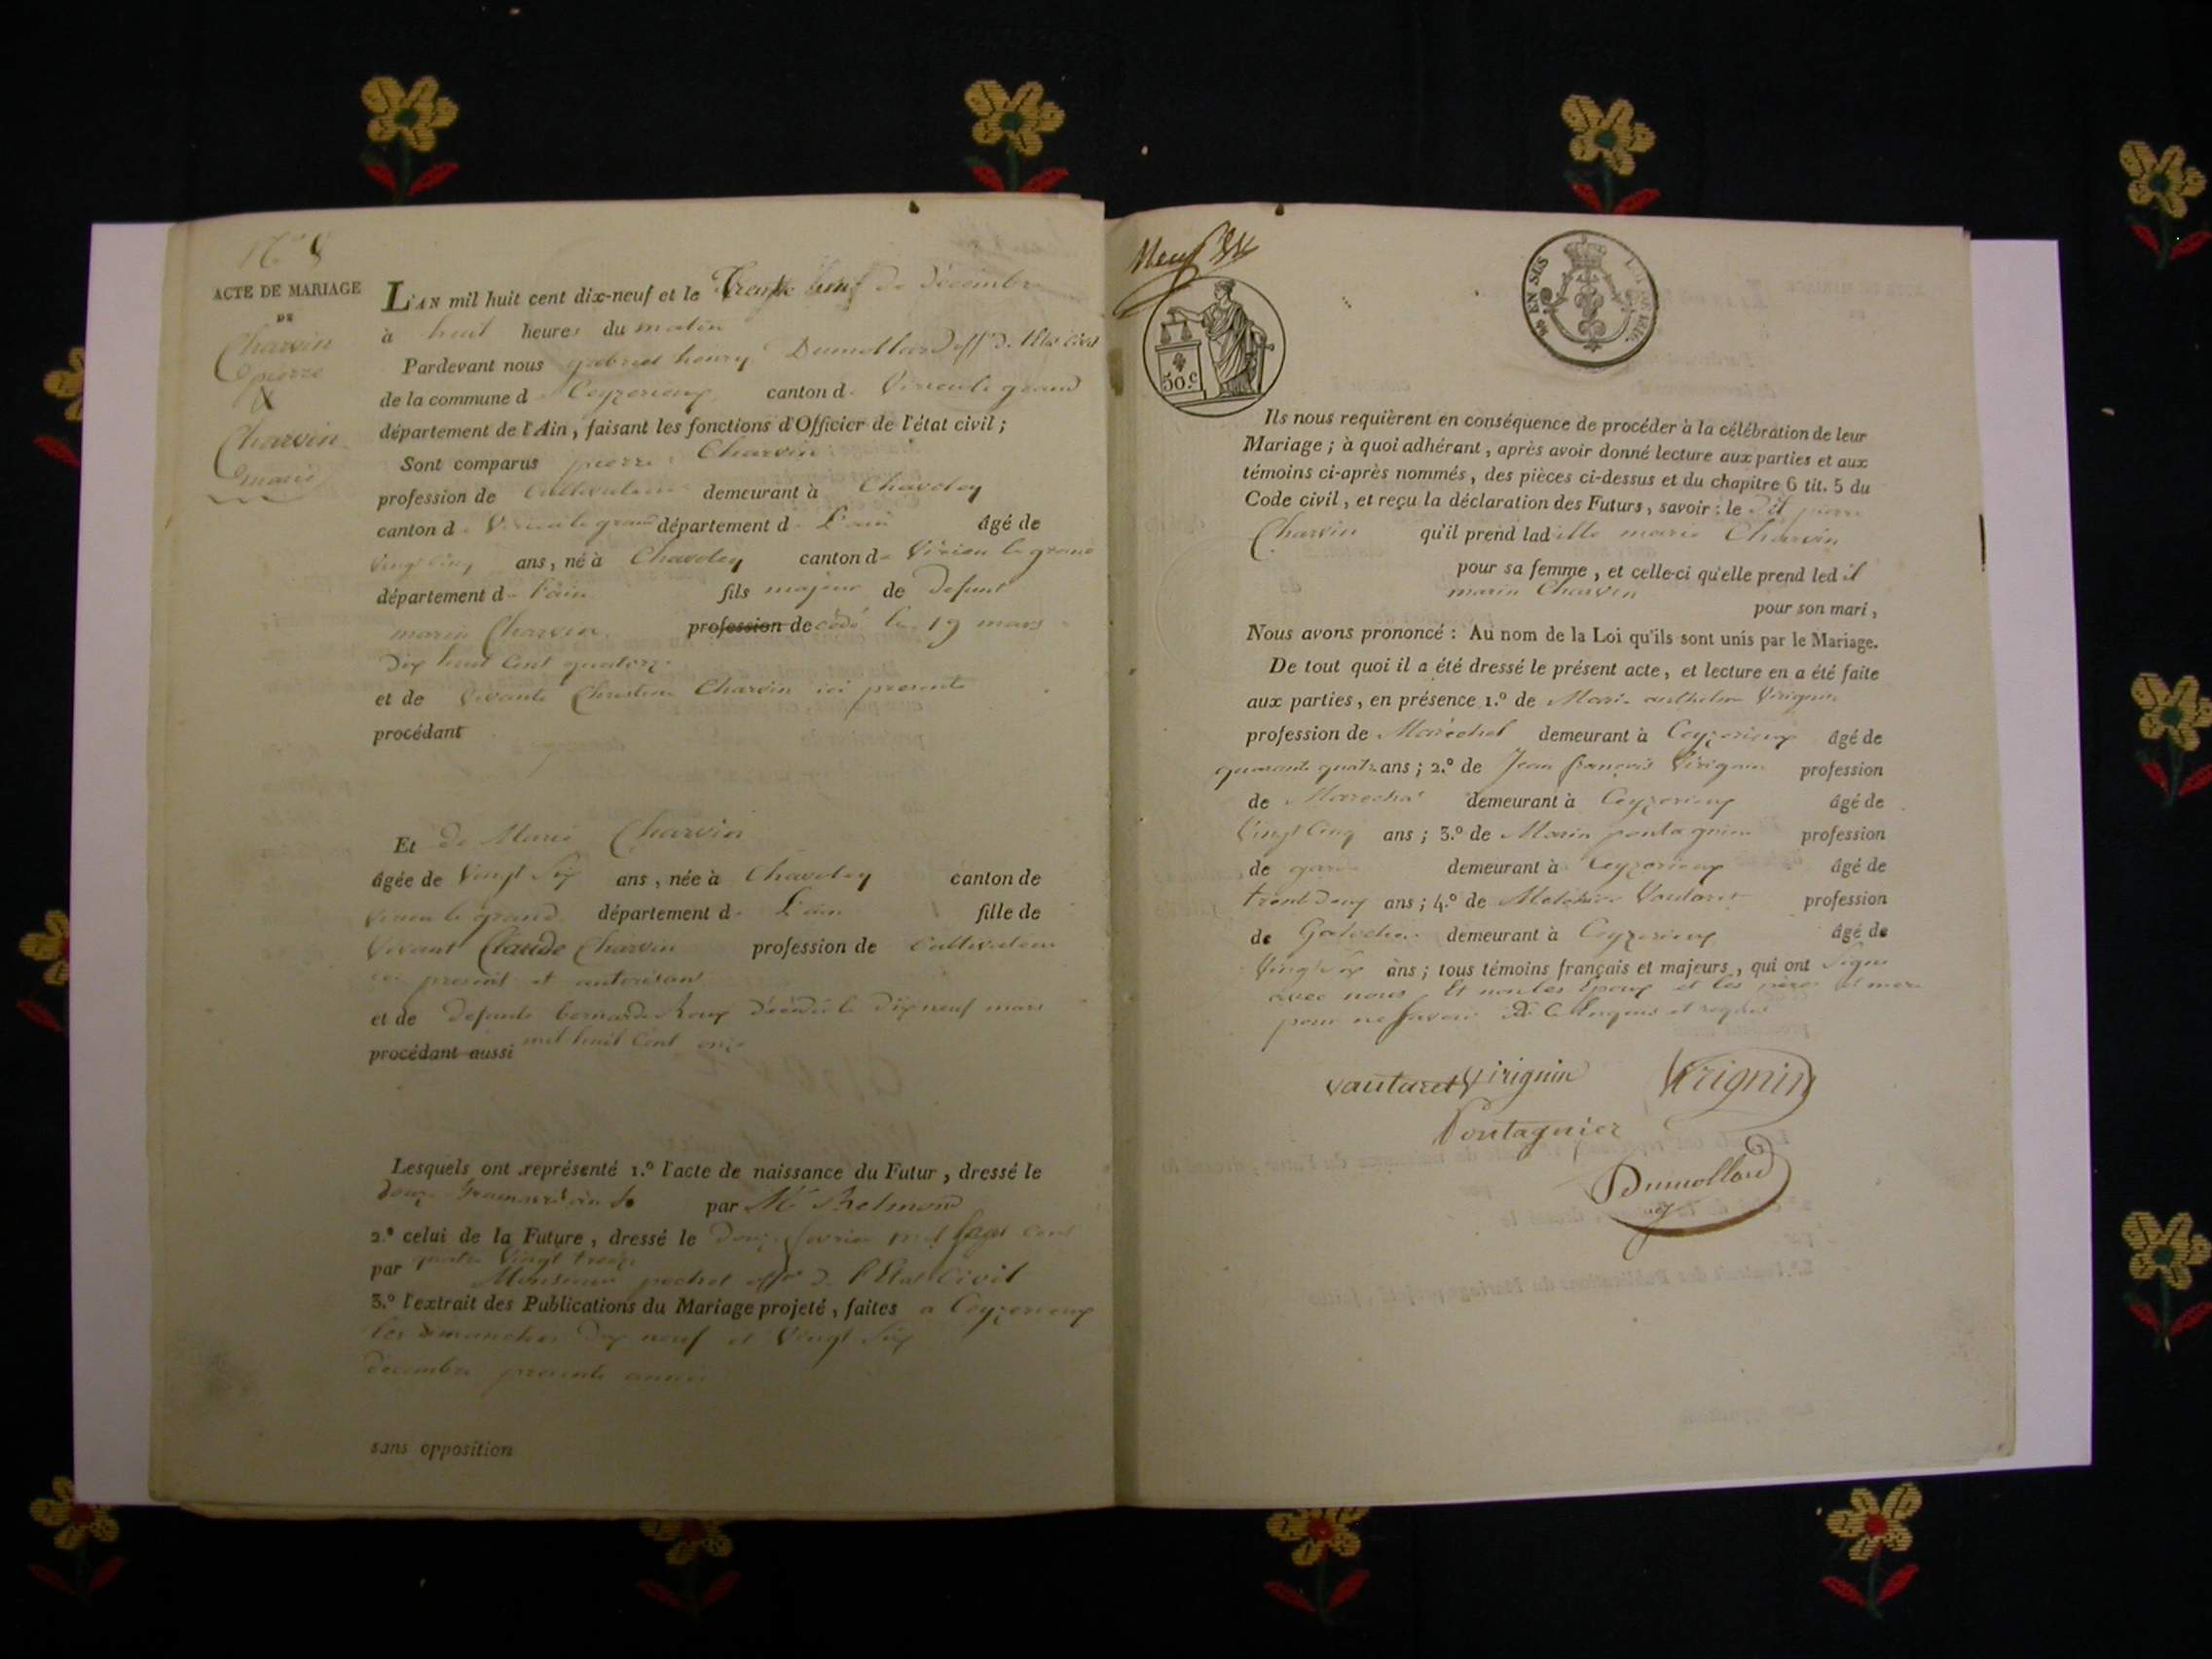 ACTE DE MARIAGE
DE
Charvin
pierre
&
Charvin
marie
L'AN mil huit cent dix-neuf et le de décembre
à huit heures du matin
Pardevant nous gabriel henry Dumollard off. d. l'Etat civil
de la commune d Ceyzerieux canton d. Virieu le grand
département de l'Ain, faisant les fonctions d'Officier de l'état civil;
Sont comparus pierre Charvin
profession de Cultivateur demeurant à Chavoley
canton d. Virieu le grand département d. L'ain âgé de
Vingt Cinq ans, né à Chavoley canton d. Virieu le grand
département d. l'ain fils majeur de defunt
marin Charvin profession de cédé le 19 mars
Dix huit Cent quatorze
et de Vivante Christine Charvin ici presente
procédant
Et de Marie Charvin
âgée de Vingt Six ans, née à Chavoley canton de
Virieu le grand département d. L'ain fille de
Vivant Claude Charvin profession de Cultivateur
ici present et autorisant
et de defunte bernarde Roux Décédée le Dix neuf mars
procédant aussi mil huit Cent onze
Lesquels ont représenté 1.º l'acte de naissance du Futur, dressé le
douze par Mr
2.º celui de la Future, dressé le douze fevrier mil sept cent
quatre Vingt treize
par Monsieur pochet offr de l'Etat Civil
3.º l'extrait des Publications du Mariage projeté, faites a Ceyzerieux
les dimanches Dix neuf et Vingt Six
décembre presente année
sans opposition
Neuf
50.c
EN SUS
Ils nous requièrent en conséquence de procéder à la célébration de leur
Mariage; à quoi adhérant, après avoir donné lecture aux parties et aux
témoins ci-après nommés, des pièces ci-dessus et du chapitre 6 tit. 5 du
Code civil, et reçu la déclaration des Futurs, savoir: le dit pierre
Charvin qu'il prend ladite marie Charvin
pour sa femme, et celle-ci qu'elle prend led it
marin Charvin
pour son mari,
Nous avons prononcé: Au nom de la Loi qu'ils sont unis par le Mariage.
De tout quoi il a été dressé le présent acte, et lecture en a été faite
aux parties, en présence 1.º de Marie anthelme Virignin
profession de Maréchal demeurant à Ceyzerieux âgé de
quarante quatre ans; 2.º de Jean françois Virignin profession
de Marechal demeurant à Ceyzerieux âgé de
Vingt Cinq ans; 3.º de Marin pontagnier profession
de garde demeurant à Ceyzerieux âgé de
trent deux ans; 4.º de Melchior Vautaret profession
de demeurant à Ceyzerieux âgé de
Vingt Six ans; tous témoins français et majeurs, qui ont signé
avec nous Et non les Epoux et les pere et mere
pour ne savoir De Ce Enquis et requis
Vautaret Virignin Virignin
Pontagnier
Dumollard